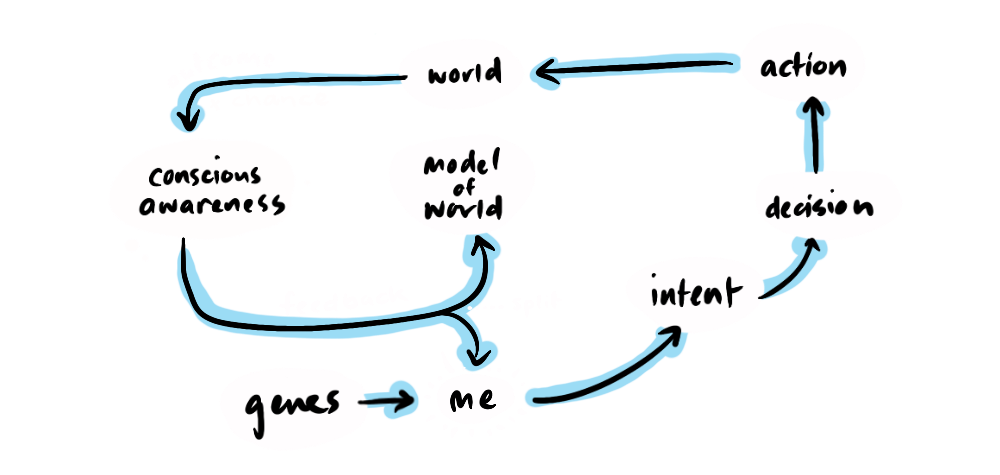 world
action
conscious
awareness
model
of
world
decision
intent
genes
me